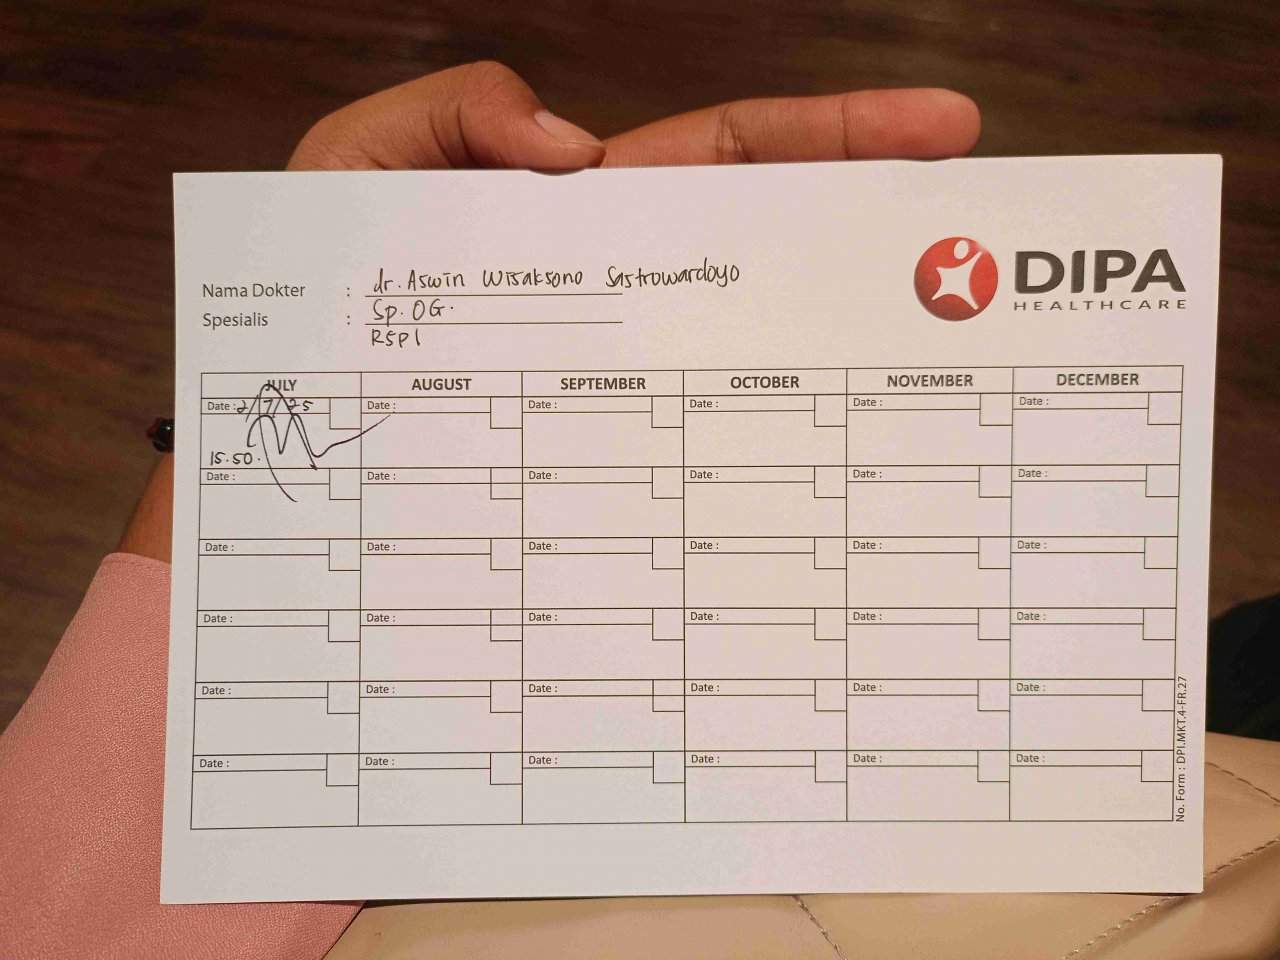 DIPA
HEALTHCARE
Nama Dokter : dr. Aswin Wisaksono Sastrowardoyo
Spesialis : Sp. OG.
RSPI
JULY AUGUST SEPTEMBER OCTOBER NOVEMBER DECEMBER
Date : 2/7/25 Date : Date : Date : Date : Date :
15.50.
Date : Date : Date : Date : Date : Date :
Date : Date : Date : Date : Date : Date :
Date : Date : Date : Date : Date : Date :
Date : Date : Date : Date : Date : Date :
Date : Date : Date : Date : Date : Date :
No. Form : DPI.MKT.4-FR.27